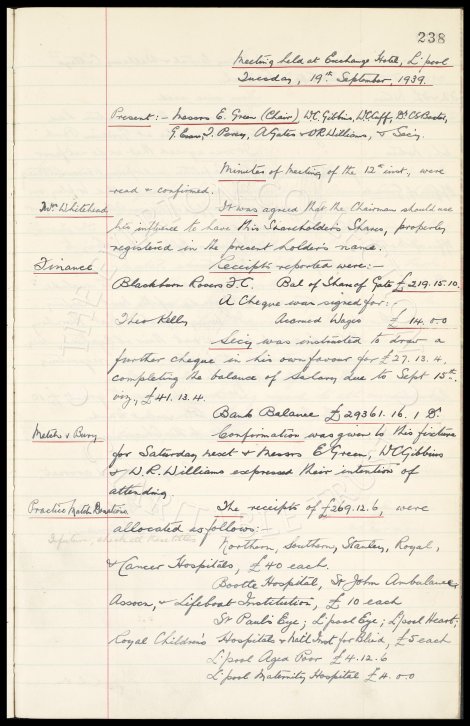 238
Meeting held at Exchange Hotel, L'pool
Tuesday, 19th September, 1939.
Present:- Messrs E. Green (Chair) W.C. Gibbins, W.C. Cuff, Dr C.S. Baxter,
G. Evans, J. Perry, A. Gates & W.R. Williams, & Secy.
Minutes of Meeting of the 12th inst., were
read & confirmed.
Whitehead
It was agreed that the Chairman should use
his influence to have this Shareholder's Shares, properly
registered in the present holder's name.
Finance
Receipts reported were:-
Blackburn Rovers F.C. Bal of Share of Gate £219.15.10.
A Cheque was signed for:-
Theo Kelly Accrued Wages £14.0.0
Secy was instructed to draw a
further cheque in his own favour for £27.13.4,
completing the balance of Salary due to Sept 15th,
viz., £41.13.4.
Bank Balance £29361.16.1 Dr.
Match v Bury
Confirmation was given to this fixture
for Saturday next & Messrs E Green, W.C. Gibbins
& W.R. Williams expressed their intention of
attending
Practice Match Donations
The receipts of £269.12.6, were
allocated as follows:-
Northern, Southern, Stanley, Royal,
& Cancer Hospitals, £40 each.
Bootle Hospital, St John Ambulance
Assocn, & Lifeboat Institution, £10 each
St Paul's Eye; L'pool Eye; L'pool Heart;
Royal Children's Hospital & Natl Inst for Blind, £5 each
L'pool Aged Poor £4.12.6
L'pool Maternity Hospital £4.0.0